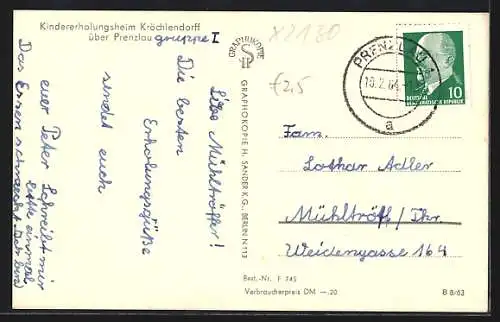 Kindererholungsheim Kröchlendorff
über Prenzlau gruppe I
Liebe Mühltröffer!
Die besten
Erholungsgrüße
sendet euch
euer Peter Schreibt mir
bitte einmal
Das Essen schmeckt. Ich bin
GRAPHOKOPIE
GRAPHOKOPIE H. SANDER K.G., BERLIN N 113
X2130
£25
PRENZLAU
10.2.64
a
DEUTSCHE
DEMOKRATISCHE REPUBLIK
10
Fam.
Lothar Adler
Mühltroff/Thr.
Weidengasse 164
Best.-Nr. F 745
Verbraucherpreis DM —.20
B 8/63